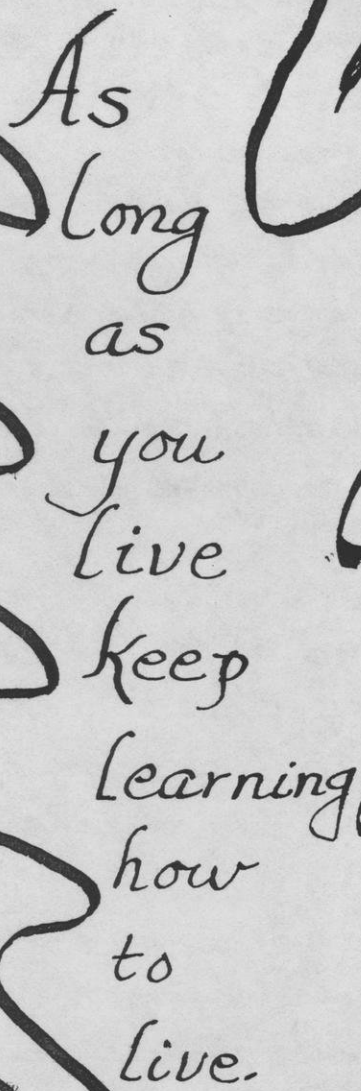 As
long
as
you
live
keep
learning
how
to
live.